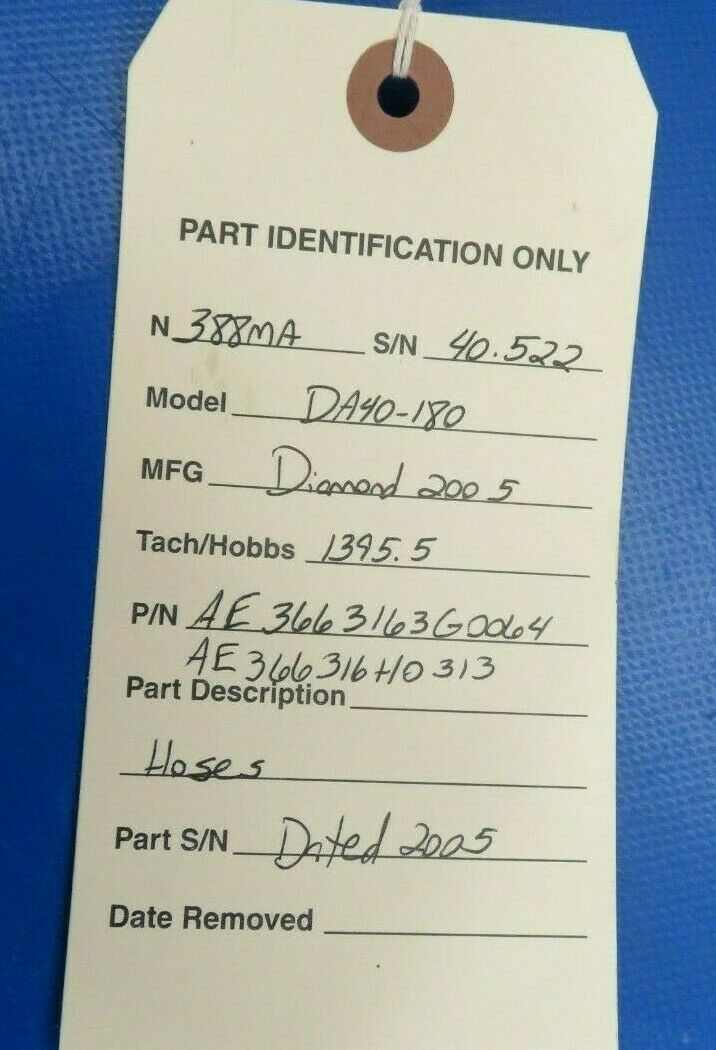 PART IDENTIFICATION ONLY
N 388MA S/N 40.522
Model DA40-180
MFG Diamond 2005
Tach/Hobbs 1395.5
P/N AE3663163G0064
AE366316H0313
Part Description
Hoses
Part S/N Dated 2005
Date Removed